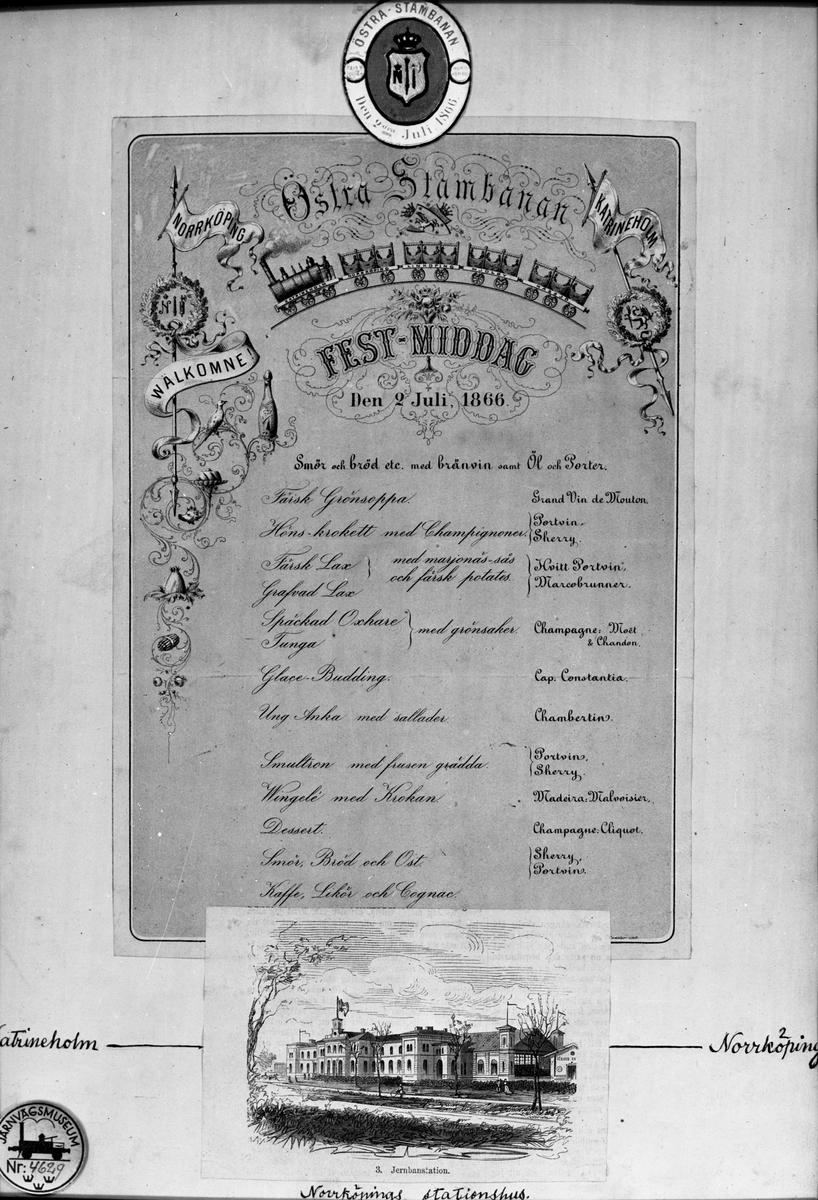 ÖSTRA-STAMBANAN
Den 2 Juli 1866
Östra Stambanan
NORRKÖPING
KATRINEHOLM
WALKOMNE
FEST-MIDDAG
Den 2 Juli, 1866.
Smör och bröd etc. med bränvin samt Öl och Porter.
Färsk Grönsoppa. Grand Vin de Mouton.
Höns-krokett med Champignoner. Portvin, Sherry.
Färsk Lax
Grafvad Lax
med marjonäs-sås
och färsk potates.
Hvitt Portvin,
Marcobrunner.
Späckad Oxhare
Tunga
med grönsaker.
Champagne: Moët
& Chandon.
Glace-Budding. Cap. Constantia.
Ung Anka med sallader. Chambertin.
Smultron med frusen grädda. Portvin, Sherry.
Wingelé med Krokan. Madeira: Malvoisier.
Dessert. Champagne: Cliquot.
Smör, Bröd och Ost. Sherry, Portvin.
Kaffe, Likör och Cognac.
Katrineholm
Norrköping
2
3. Jernbanstation.
Norrköpings stationshus.
JÄRNVÄGSMUSEUM
Nr: 4629